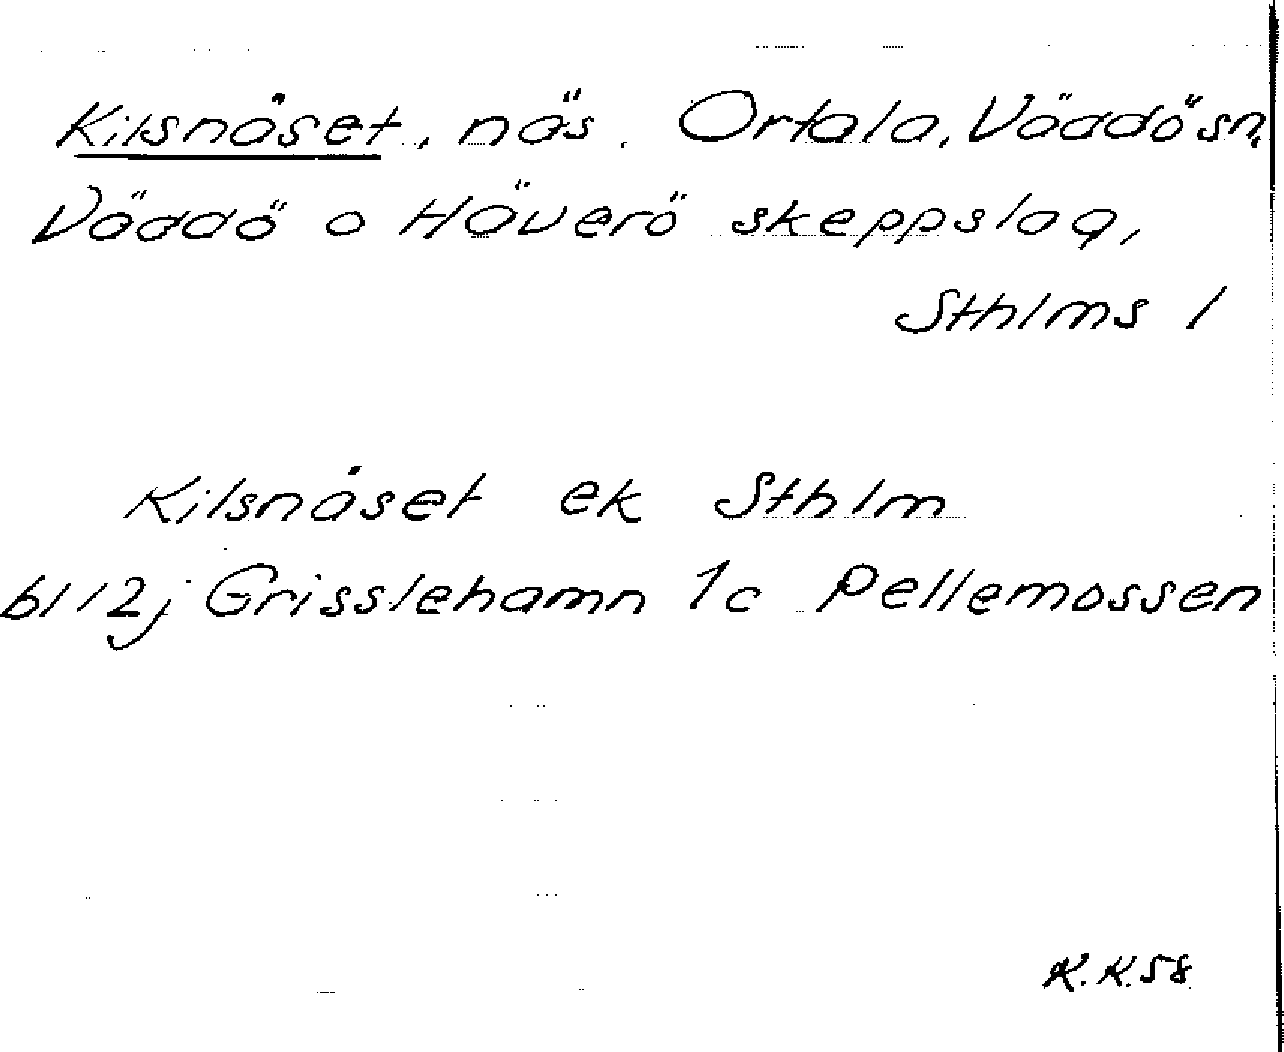 Kilsnäset, näs. Ortala, Väddö sn,
Väddö o Häverö skeppslag,
Sthlms l
Kilsnäset ek Sthlm
bl 12j Grisslehamn 1c Pellemossen
K.K.58